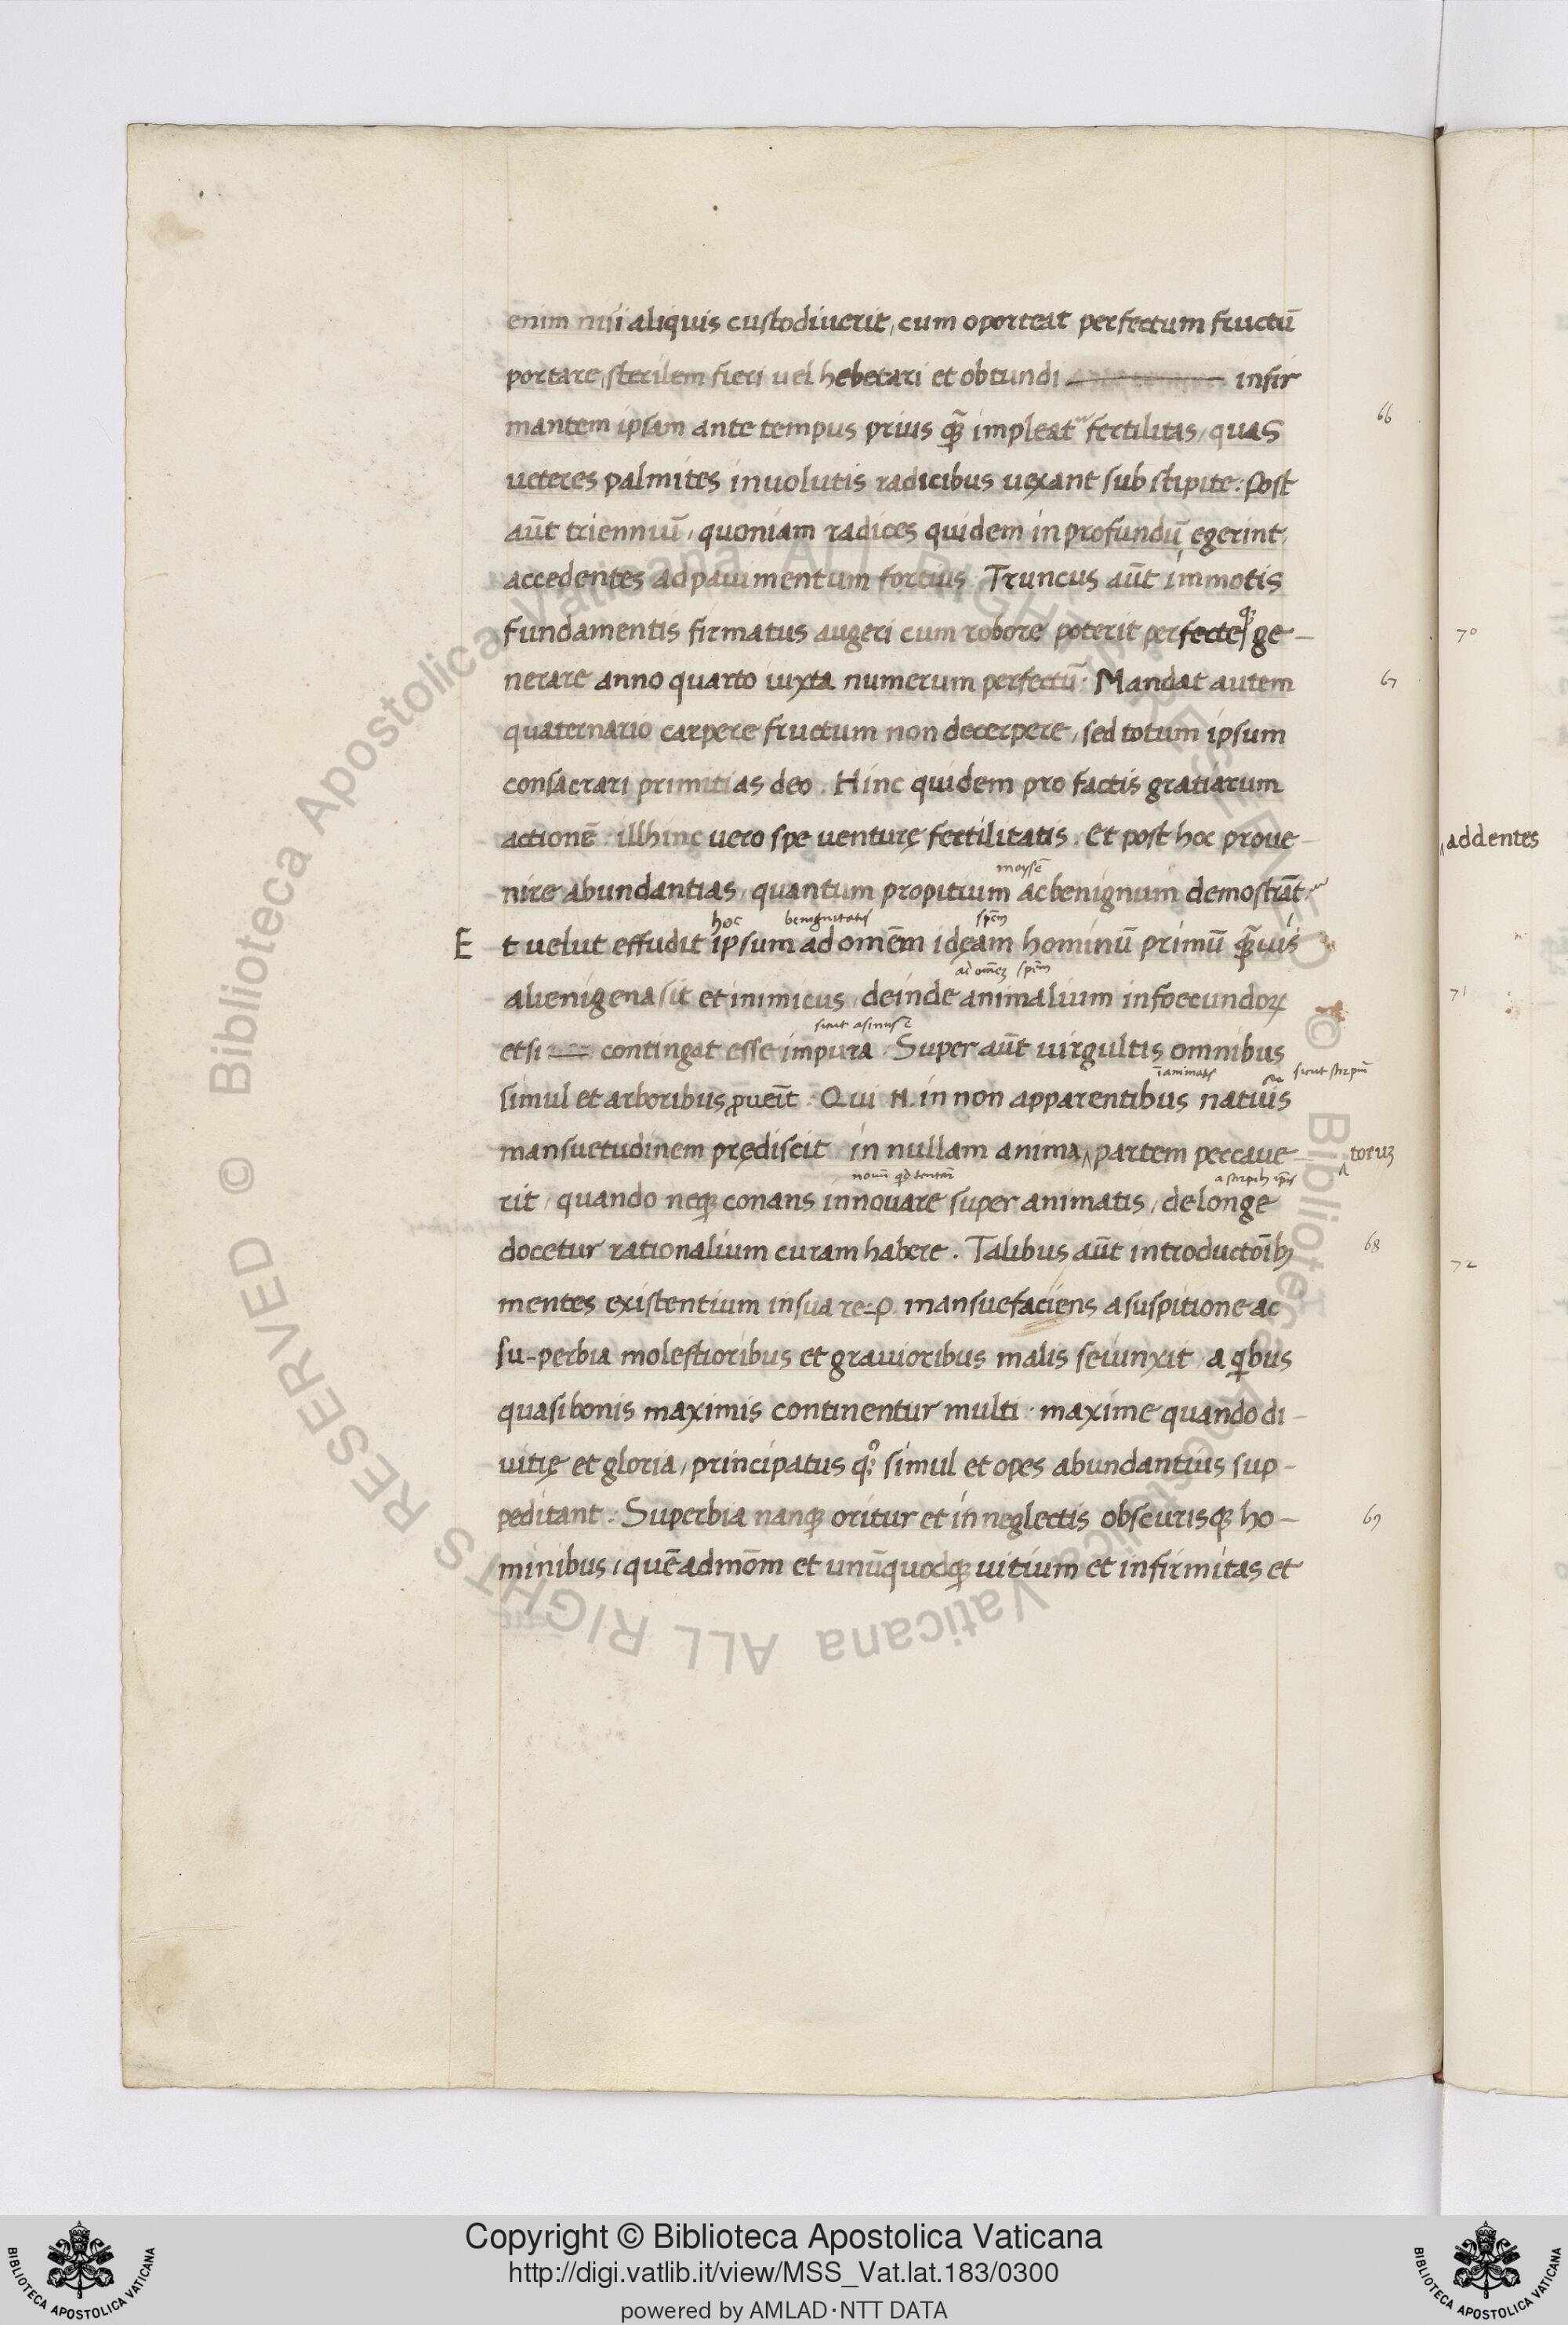 enim nisi aliquis custodiuerit, cum oporteat perfectum fructū
portare, sterilem fieri uel hebetari et obtundi infir
66
mantem ipsam ante tempus prius q̃ȝ impleat fertilitas, quas
ueteres palmites inuolutis radicibus uexant sub stipite: Post
aūt trienniū, quoniam radices quidem in profundū egerint,
accedentes ad pauimentum fortius. Truncus aūt immotis
fundamentis firmatus augeri cum robore poterit perfecteqȝ ge-
70
nerare anno quarto iuxta numerum perfectū. Mandat autem
67
quaternario carpere fructum non decerpere, sed totum ipsum
consacrari primitias deo. Hinc quidem pro factis gratiarum
actionē illhinc uero spe venturę fertilitatis. Et post hoc proue-
addentes
moysē
nire abundantias, quantum propitium ac benignum demostrāt
hoc benignitatis spēm
Et uelut effudit ipsum ad omēm ideam hominū primū q̃ȝuis
ad omēȝ spēm
alienigena sit et inimicus, deinde animalium infoecundoꝝ
71
sicut asinus ē
etsi contingat esse impura. Super aūt uirgultis omnibus
īanimatis sicut stirpiū
simul et arboribus ꝓueīt. Qui N. in non apparentibus natiuis
mansuetudinem prędiscit in nullam anima partem peccaue-
toruȝ
nouū qd tentēt a stirpibȝ ipis
rit, quando neqȝ conans innouare super animatis, de longe
docetur rationalium curam habere. Talibus aūt introductōibȝ
68
72
mentes existentium in sua re=p. mansuefaciens a suspitione ac
su-perbia molestioribus et grauioribus malis seiunxit a qibus
quasi bonis maximis continentur multi maxime quando di-
uitię et gloria, principatus q: simul et opes abundantius sup-
peditant. Superbia nanqȝ oritur et in neglectis obscurisqȝ ho-
69
minibus, quēadmōm et unūquodqȝ uitium et infirmitas et
© Biblioteca Apostolica Vaticana ALL RIGHTS RESERVED
© Biblioteca Apostolica Vaticana ALL RIGHTS RESERVED
Copyright © Biblioteca Apostolica Vaticana
http://digi.vatlib.it/view/MSS_Vat.lat.183/0300
powered by AMLAD·NTT DATA
BIBLIOTECA APOSTOLICA VATICANA
BIBLIOTECA APOSTOLICA VATICANA